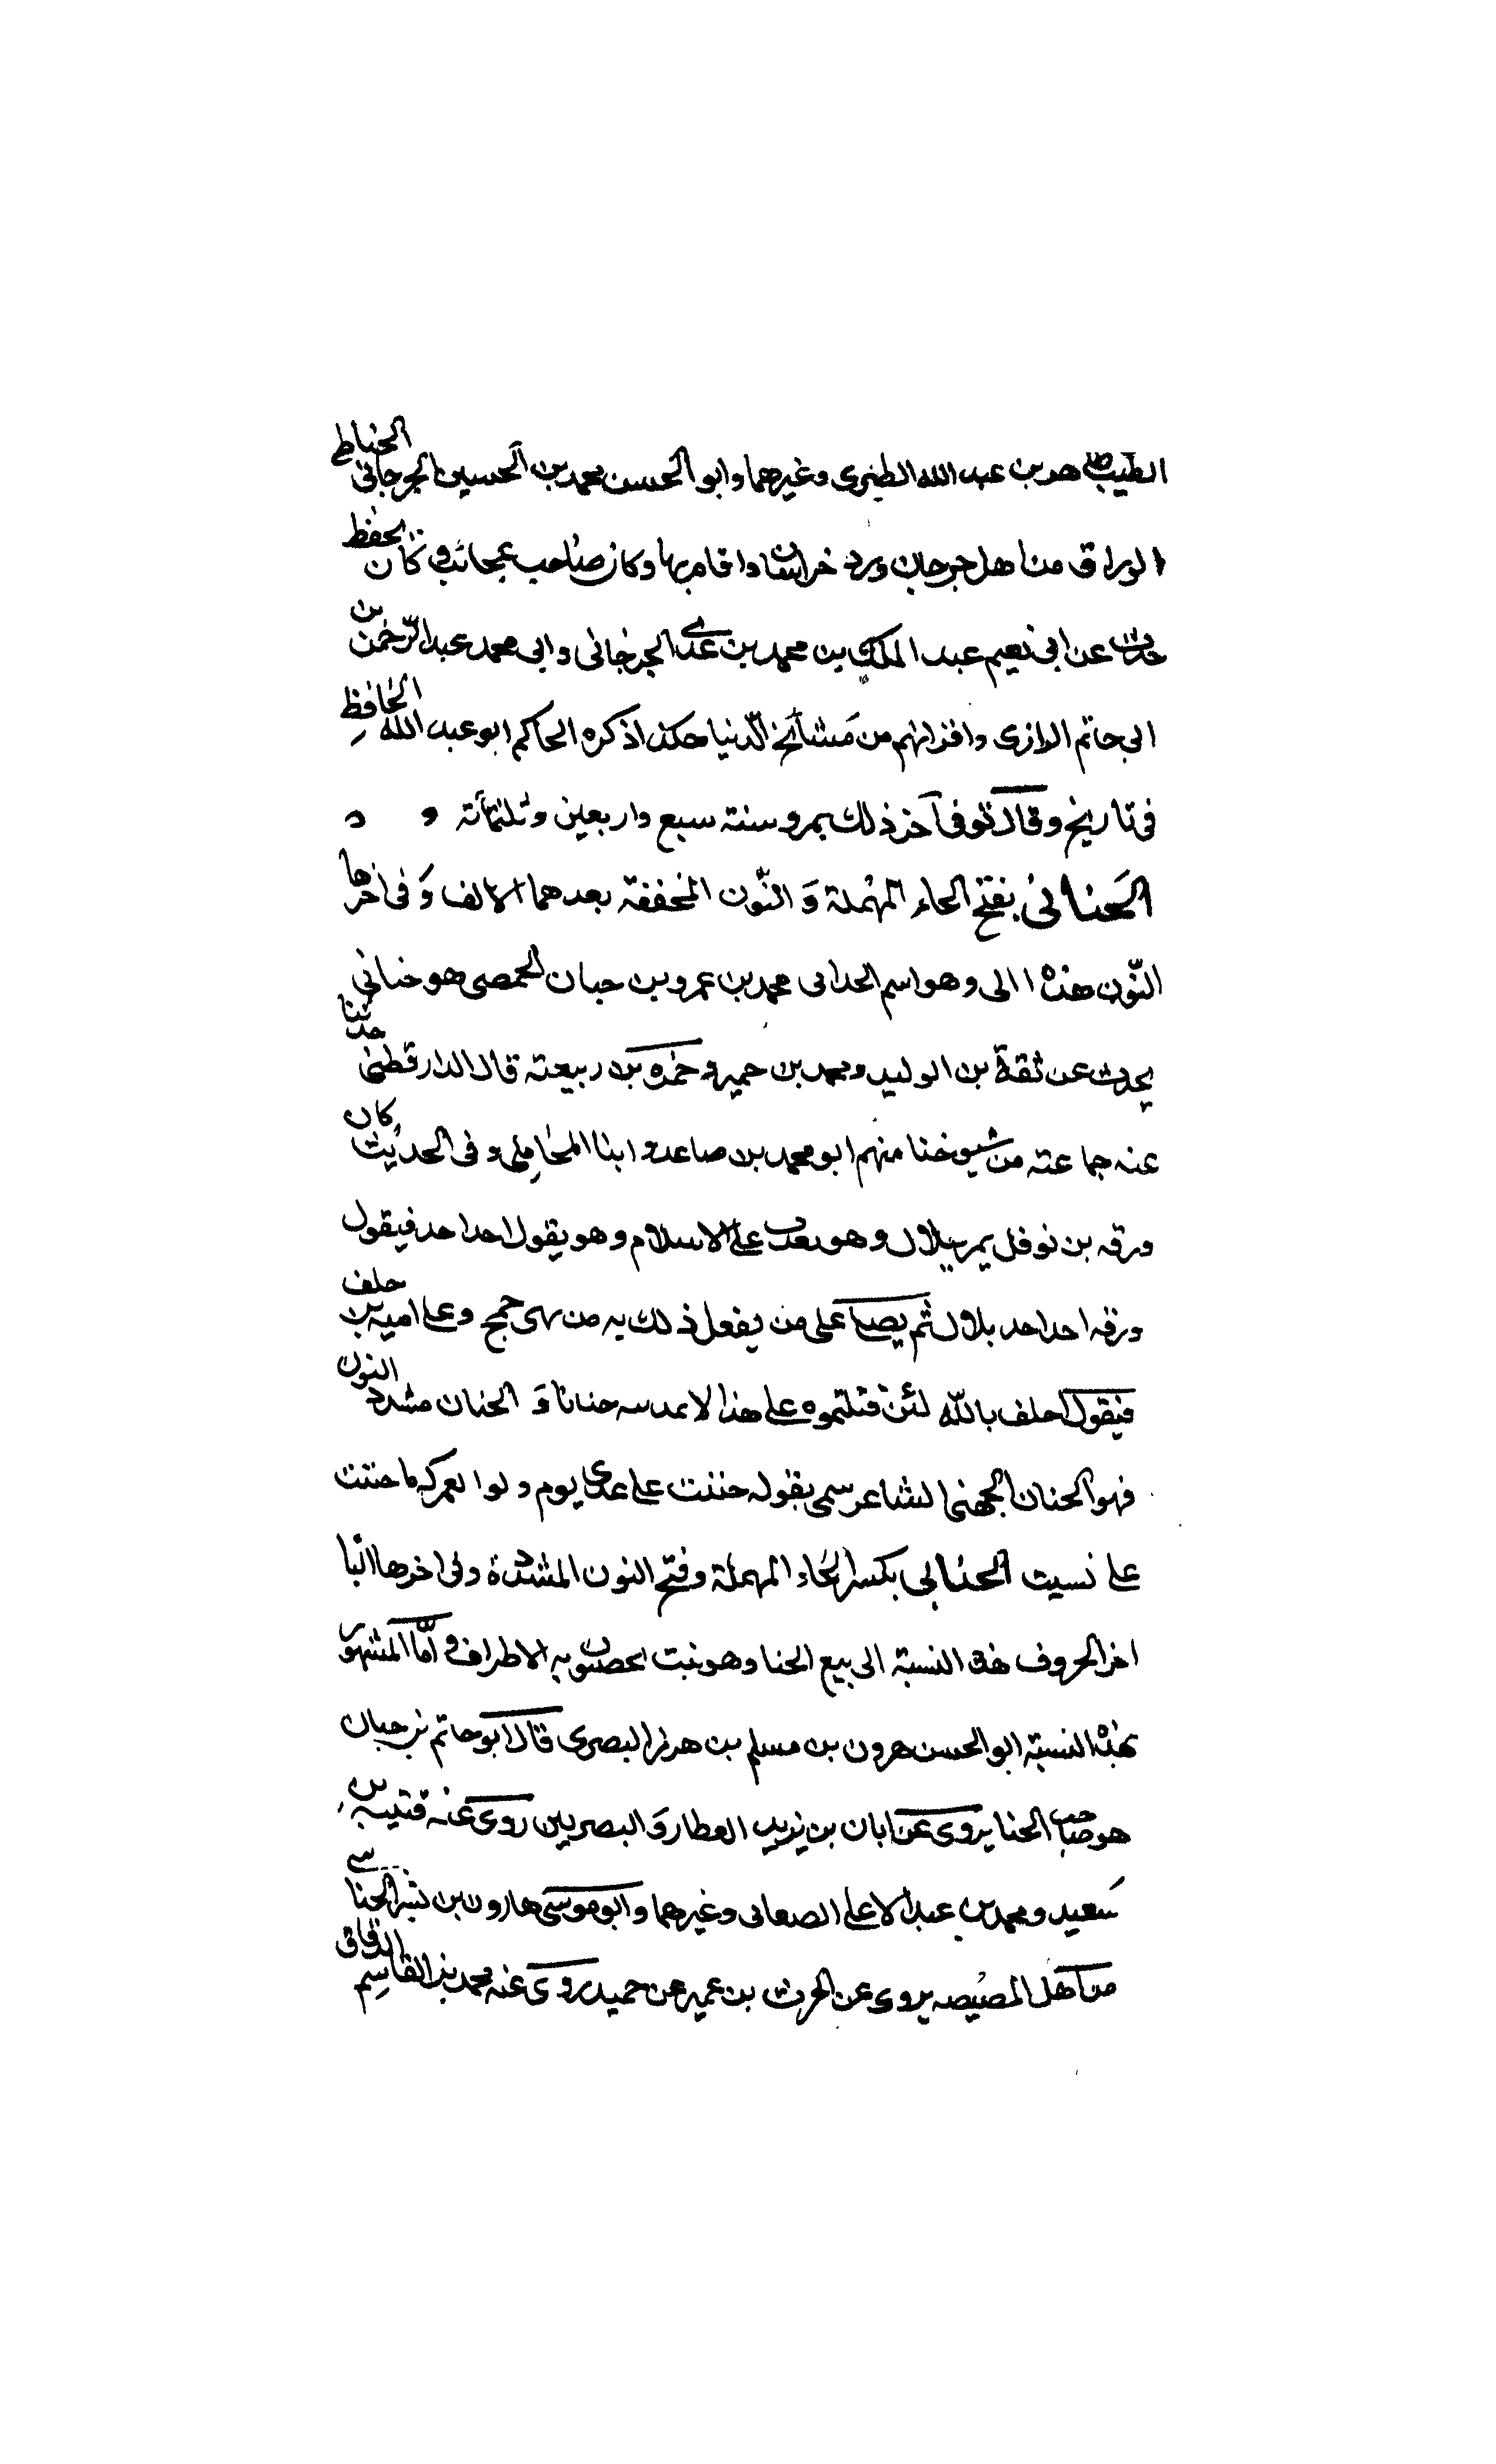 الطيب طاهر بن عبد الله الطبرى وغيرهما وابو الحسن محمد بن الحسين الجرجانى الحناطى
الوراق من اهل جرجان ورد خراسان واقام بها وكان صاحب عجائب وكان يحفظ
حدث عن ابى نعيم عبد الملك بن محمد بن عدى الجرجانى وابى محمد عبد الرحمن بن
ابى حاتم الرازى واقرانهم من مشائخ الدنيا هكذا ذكره الحاكم ابو عبد الله الحافظ
فى تاريخ وقال توفى آخر ذلك بمرو سنة سبع واربعين وثلثمائة
الحنانى بفتح الحاء المهملة وَ النّون المخففة بعدهما الالف وَ فى اخرها
النّون هذه الى وهو اسم محمد بن عمرو بن حبان الحمصى هو حنانى
يحدث عن ثقة بن الوليد ومحمد بن حمير وحمزه بن ربيعة قال الدارقطنى حدثنا
عنه جماعته من شيوخنا منهم ابو محمد بن صاعد و ابنا المحاملى وفى الحديث كان
ورقه بن نوفل يمر ببلال وهو يعذب على الاسلام وهو يقول احد احد فيقول
ورقه احد احد بلال ثم على من يفعل ذلك به من بنى جمح وعلى اميه بن خلف
فيقول احلف بالله لئن قتلتموه على هذا حنانا وَ الحنان مشدد النون
فهو الحنان الجهنى الشاعر سمى بقوله حننت على عدى يوم ولوا لعمرك ما حننت
على نسيب الحنايى بكسر الحاء المهملة وفتح النون المشددة وفى اخرها اليا
اخر الحروف هذه النسبة الى بيع الحنا وهو نبت يخضبون به الاطراف و امّا المشهور
بهذه النسبة ابو الحسن هرون بن مسلم بن هرمز البصرى قال ابو حاتم بن حبان
هو صاحب الحنا يروى عن ابان بن يزيد العطار وَ البصريين روى عنه قتيبه بن
سعيد ومحمد بن عبد الاعلى الصنعانى وغيرهما وابو موسى هارون بن الحنايى
من اهل المصيصه يروى عن الحرث بن عمير عن حميد روى عنه محمد بن القاسم الدقاق